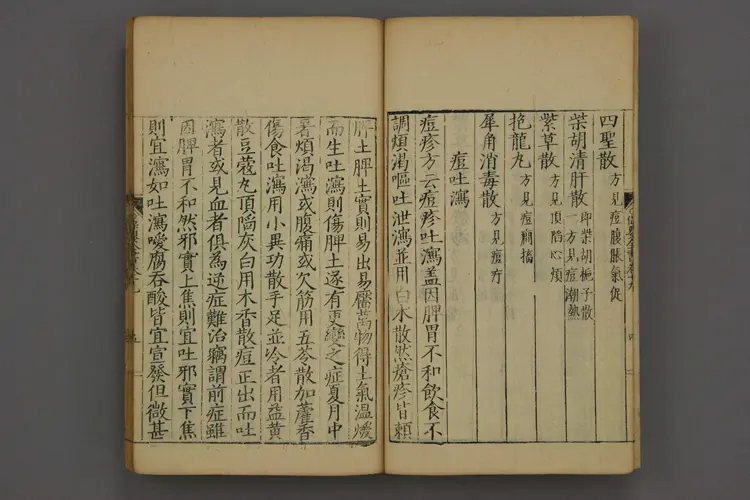 四聖散方見痘腹脹氣促
柴胡清肝散即柴胡梔子散一方見痘潮熱
紫草散方見頂陷心煩
抱龍丸方見痘癇搐
犀角消毒散方見痘疔
痘吐瀉
痘疹方云痘疹吐瀉蓋因脾胃不和飲食不
調煩渴嘔吐泄瀉並用白木散然瘡疹皆賴
脾土脾土實則易出易靨萬物得土氣温煖
而生吐瀉則傷脾土遂有更變之症夏月中
暑煩渴瀉或腹痛或欠筋用五苓散加藿香
傷食吐瀉用小異功散手足並冷者用益黄
散豆蔻丸頂陷灰白用木香散痘正出而吐
瀉者或見血者俱為逆症難治竊謂前症雖
因脾胃不和然邪實上焦則宜吐邪實下焦
則宜瀉如吐瀉噯腐吞酸皆宜宣發但微甚